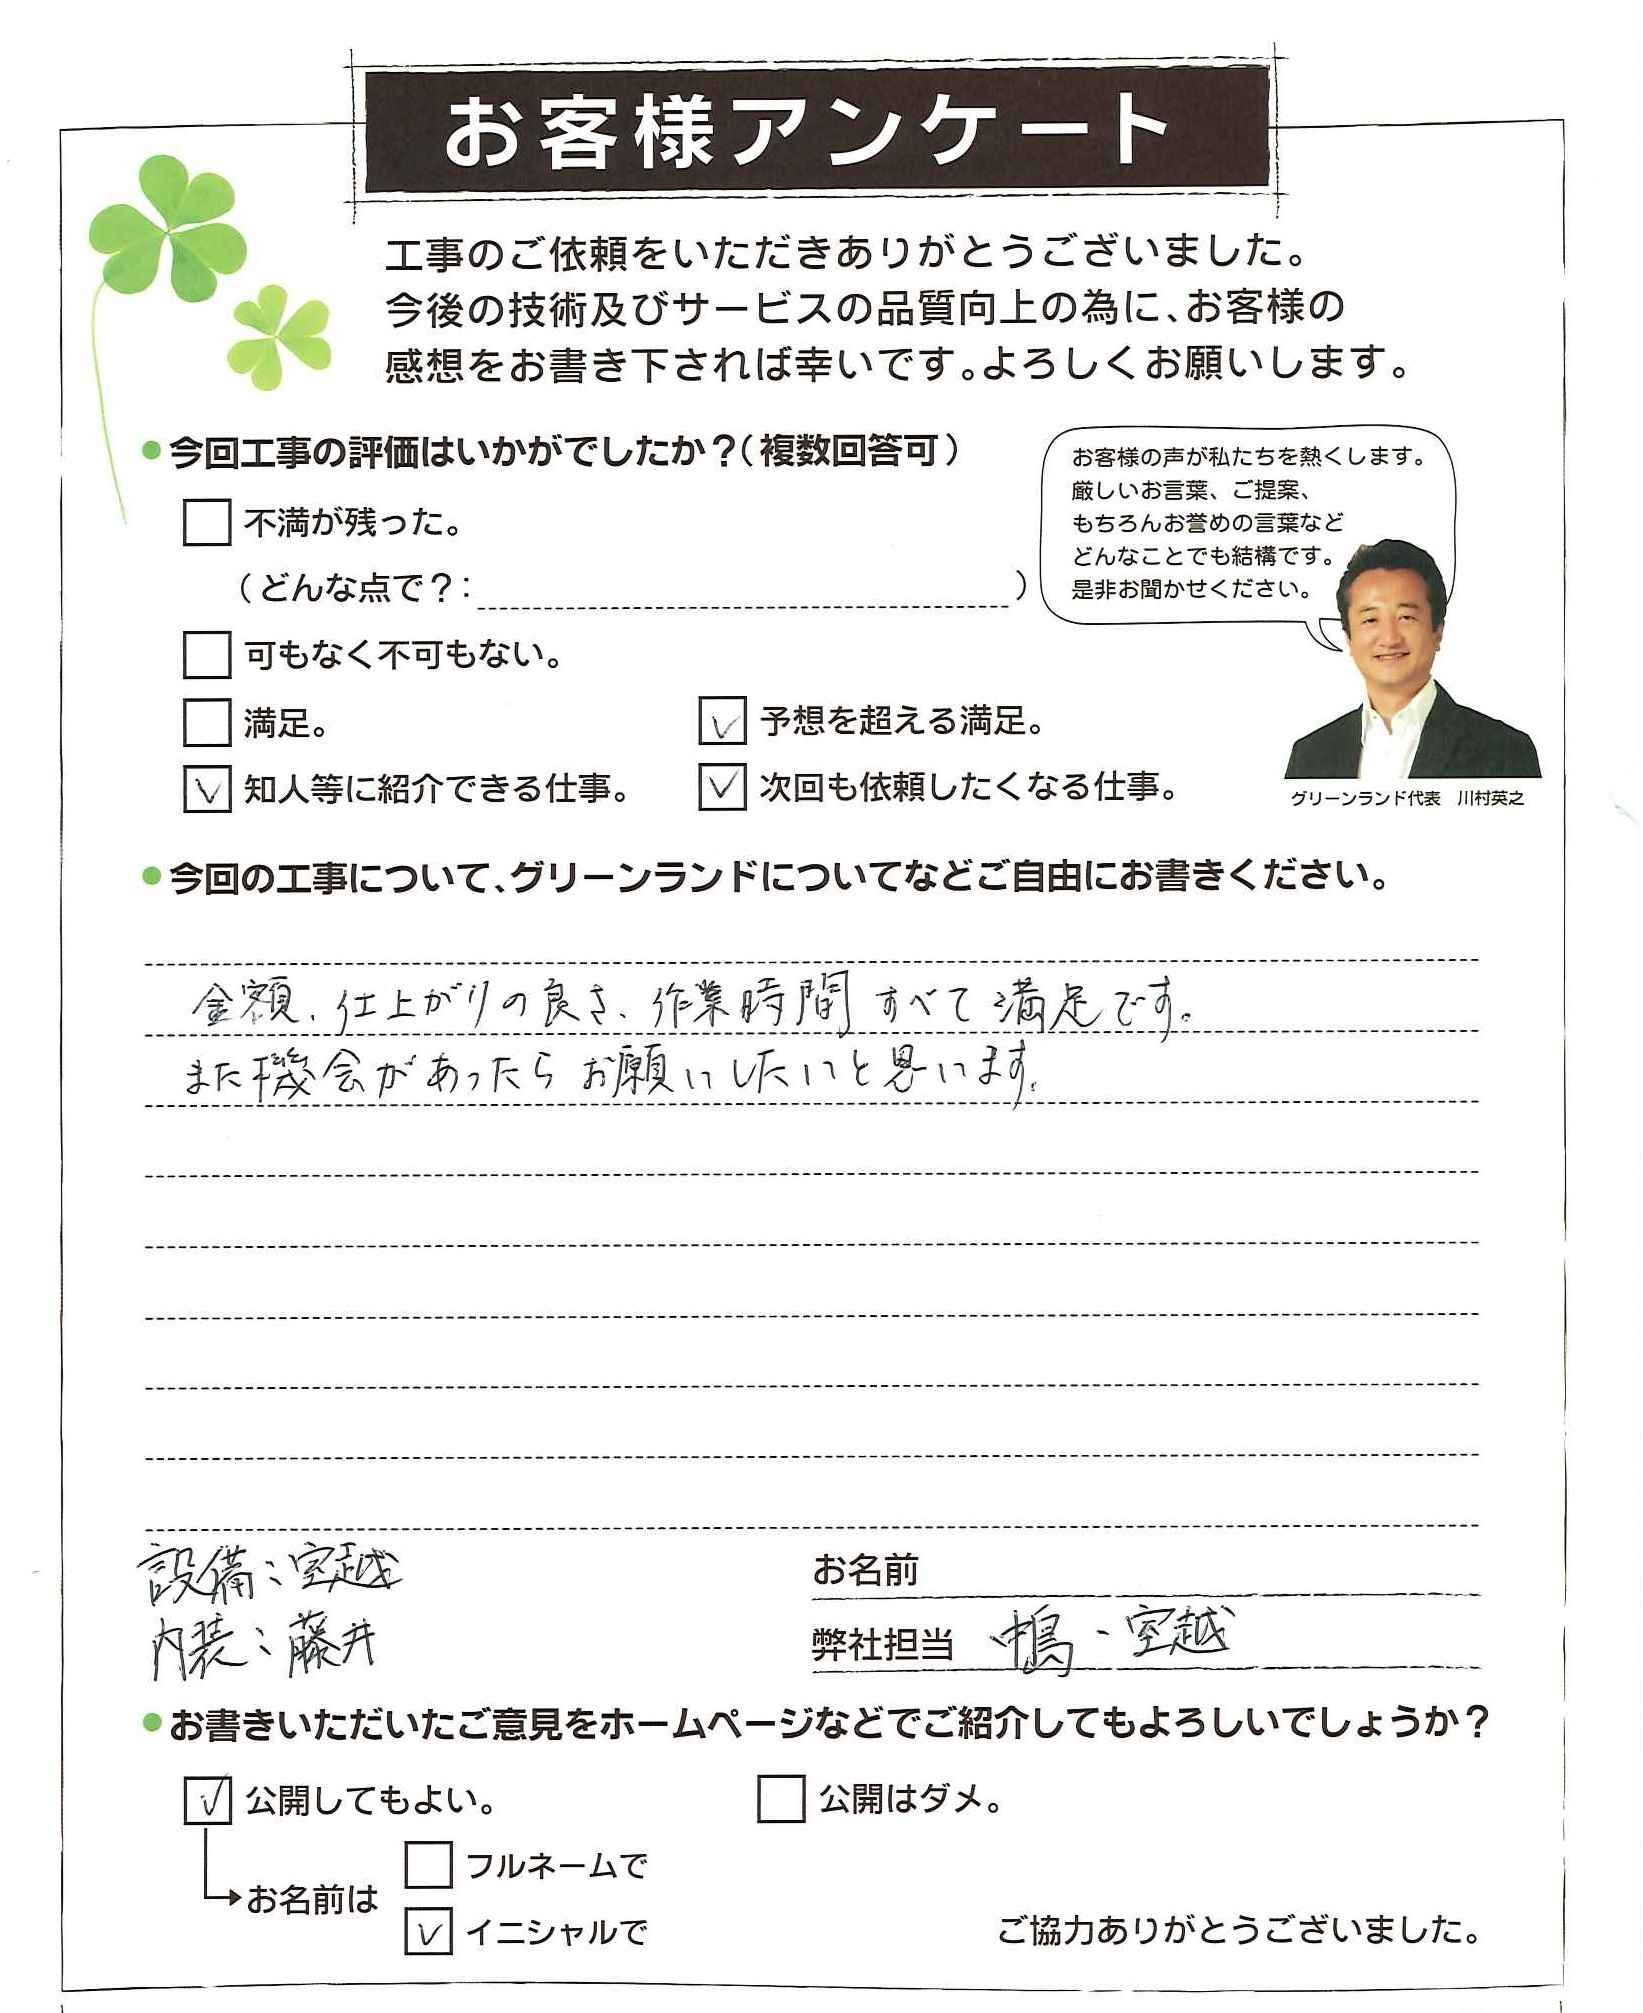 お客様アンケート
工事のご依頼をいただきありがとうございました。
今後の技術及びサービスの品質向上の為に、お客様の
感想をお書き下されば幸いです。よろしくお願いします。
●今回工事の評価はいかがでしたか？（複数回答可）
不満が残った。
（どんな点で？：　）
可もなく不可もない。
満足。
予想を超える満足。
知人等に紹介できる仕事。
次回も依頼したくなる仕事。
お客様の声が私たちを熱くします。
厳しいお言葉、ご提案、
もちろんお誉めの言葉など
どんなことでも結構です。
是非お聞かせください。
グリーンランド代表　川村英之
●今回の工事について、グリーンランドについてなどご自由にお書きください。
金額、仕上がりの良さ、作業時間すべて満足です。
また機会があったらお願いしたいと思います。
設備：室越
内装：藤井
お名前
弊社担当　・室越
●お書きいただいたご意見をホームページなどでご紹介してもよろしいでしょうか？
公開してもよい。
公開はダメ。
お名前は
フルネームで
イニシャルで
ご協力ありがとうございました。